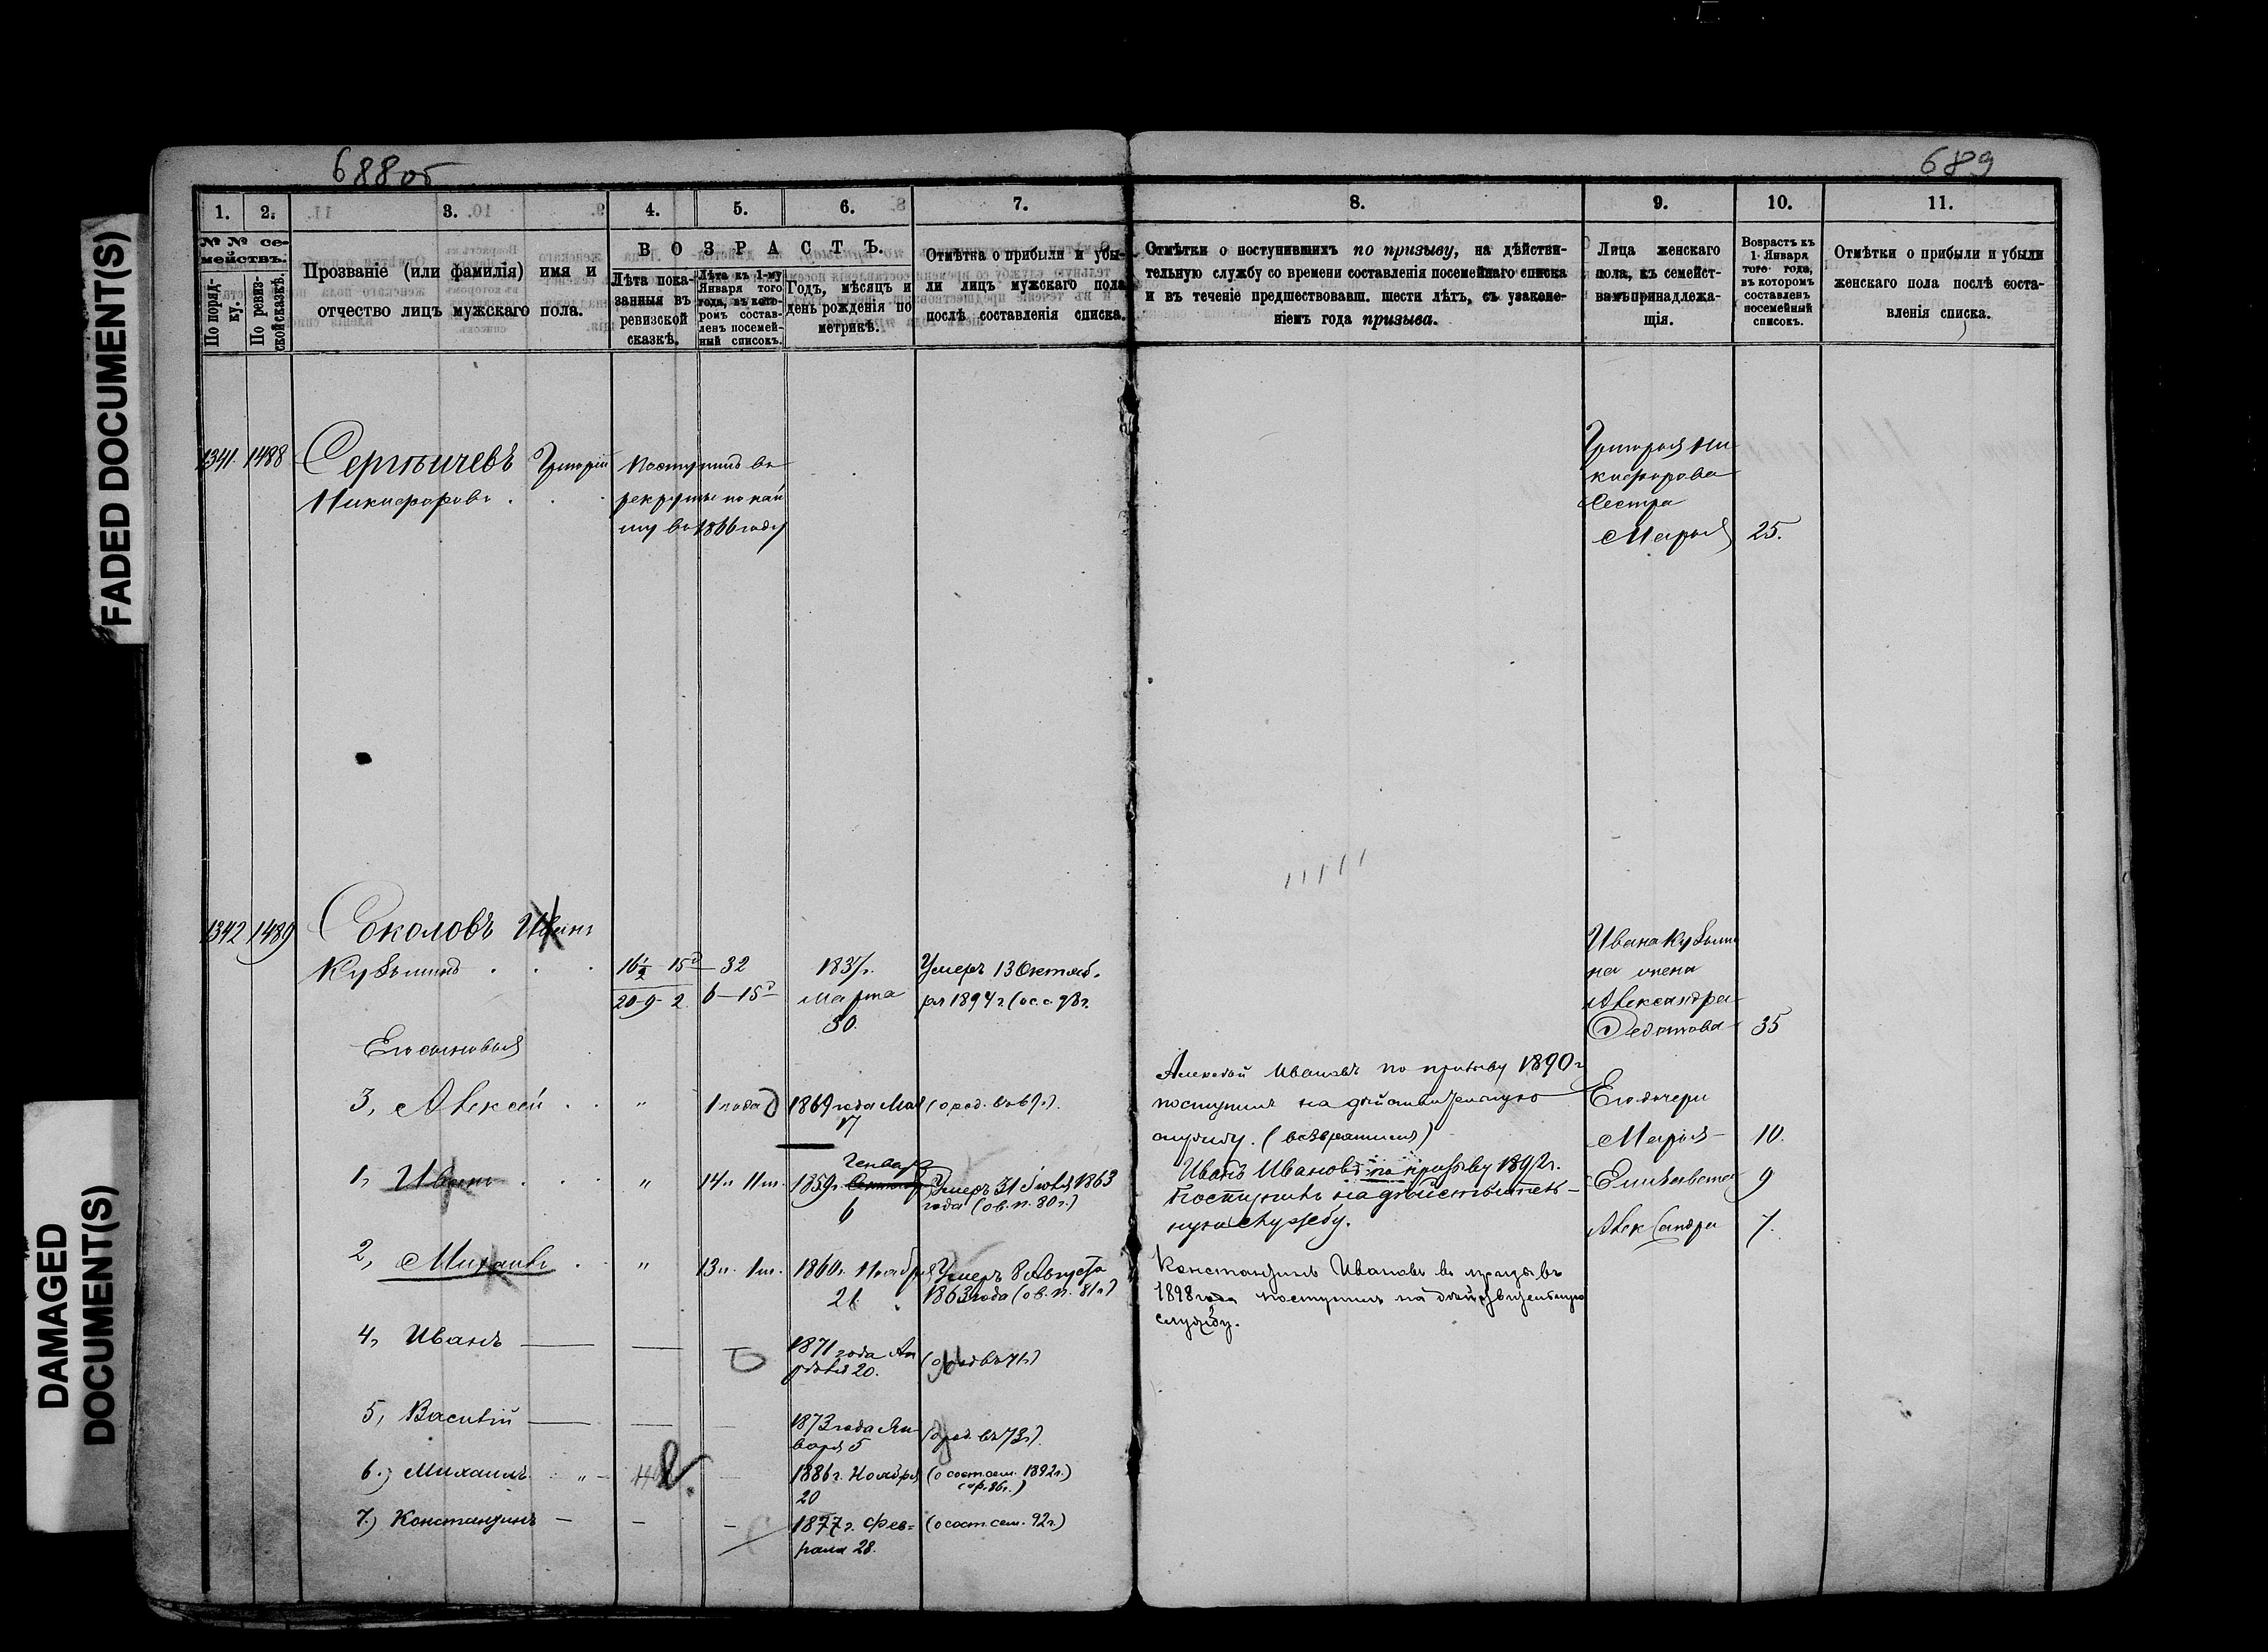 FADED DOCUMENT(S)
DAMAGED
DOCUMENT(S)
688об
689
1. 2. 3. 4. 5. 6. 7.
№ № се-
мействъ.
По поряд-
ку.
По ревиз-
ской сказкѣ.
Прозваніе (или фамилія) имя и
отчество лицъ мужскаго пола.
ВОЗРАСТЪ.
Лѣта пока-
занныя въ
ревизской
сказкѣ.
Лѣта къ 1-му
Января того
года, въ кото-
ромъ состав-
ленъ посемей-
ный списокъ.
Годъ, мѣсяцъ и
день рожденія по
метрикѣ.
Отмѣтка о прибыли и убы-
ли лицъ мужскаго пола
послѣ составленія списка.
8. 9. 10. 11.
Отмѣтки о поступившихъ по призыву, на дѣйстви-
тельную службу со времени составленія посемейнаго списка
и въ теченіе предшествовавш. шести лѣтъ, съ указане-
ніемъ года призыва.
Лица женскаго
пола, къ семейст-
вамъ принадлежа-
щія.
Возрастъ къ
1 Января
того года,
въ которомъ
составленъ
посемейный
списокъ.
Отмѣтки о прибыли и убыли
женскаго пола послѣ соста-
вленія списка.
1341. 1488 Сергѣичевъ Григорій
Никифоровъ
Поступилъ въ
рекруты по най
му въ 1866 году
Григорья Ни
кифорова
Сестра
Марья 25.
1342 1489 Соколовъ Иванъ
Кузьминъ
16½ 15 32
20-9-2 6-15
1837г.
Марта
30.
Умеръ 13 Октяб.
ря 1894 г.
Ивана Кузьми
на жена
Александра
Федотова 35
Его сыновья
3, Алексѣй " 1 года
1869 года Мая
17
Алексѣй Ивановъ по призыву 1890 г
поступилъ на дѣйствительную
службу. (возвратился)
Его дочери
Марья 10.
1, Иванъ " 14л 11м.
1859г. Генваря
6
Умеръ 31 Іюля 1863
года (об. п. 80 г.)
Иванъ Ивановъ по призыву 1892г.
Поступилъ на дѣйствитель-
ную службу.
Елизавета 9
Александра 7.
2, Михаилъ " 13л. 1м.
1860г. Ноября
21
Умеръ 8 Августа
1863 года (об. п. 81 г)
Константинъ Ивановъ въ призывъ
1898 года поступилъ на дѣйствительную
службу.
4, Иванъ
1871 года Ап
рѣля 20.
5, Василій
1873 года Ян-
варя 5
(о род. въ 73г).
6.) Михаилъ "
1886 г. Ноября
20
(о сост. сем. 1892г.)
7.) Константинъ
1877 г. Фев=
раля 28.
(о сост. сем. 92 г.)